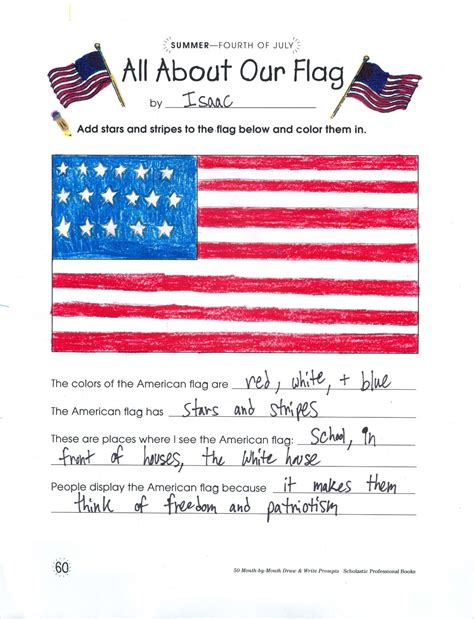 SUMMER—FOURTH OF JULY
All About Our Flag
by Isaac
Add stars and stripes to the flag below and color them in.
The colors of the American flag are red, white, + blue
The American flag has stars and stripes
These are places where I see the American flag: School, in
front of houses, the white house
People display the American flag because it makes them
think of freedom and patriotism
60
50 Month-by-Month Draw & Write Prompts Scholastic Professional Books